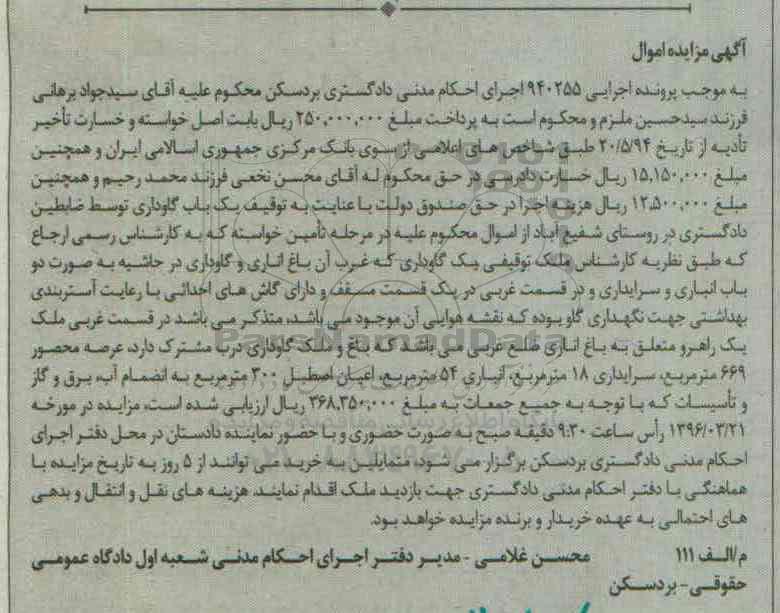 آگهی مزایده اموال
به موجب پرونده اجرایی ۹۴۰۲۵۵ اجرای احکام مدنی دادگستری بردسکن محکوم علیه آقای سیدجواد برهانی
فرزند سیدحسین ملزم و محکوم است به پرداخت مبلغ ۲۵۰,۰۰۰,۰۰۰ ریال بابت اصل خواسته و خسارت تأخیر
تأدیه از تاریخ ۲۰/۵/۹۴ طبق شاخص های اعلامی از سوی بانک مرکزی جمهوری اسالامی ایران و همچنین
مبلغ ۱۵,۱۵۰,۰۰۰ ریال خسارت دادرسی در حق محکوم له آقای محسن نخعی فرزند محمد رحیم و همچنین
مبلغ ۱۲,۵۰۰,۰۰۰ ریال هزینه اجرا در حق صندوق دولت با عنایت به توقیف یک باب گاوداری توسط ضابطین
دادگستری در روستای شفیع آباد از اموال محکوم علیه در مرحله تأمین خواسته که به کارشناس رسمی ارجاع
که طبق نظریه کارشناس ملک توقیفی یک گاوداری که غرب آن باغ اناری و گاوداری در حاشیه به صورت دو
باب انباری و سرایداری و در قسمت غربی در یک قسمت مسقف و دارای گاش های احداثی با رعایت آستربندی
بهداشتی جهت نگهداری گاو بوده که نقشه هوایی آن موجود می باشد، متذکر می باشد در قسمت غربی ملک
یک راهرو متعلق به باغ اناری ضلع غربی می باشد که باغ و ملک گاوداری درب مشترک دارد، عرصه محصور
۶۶۹ مترمربع، سرایداری ۱۸ مترمربع، انباری ۵۴ مترمربع، اعیان اصطبل ۳۰۰ مترمربع به انضمام آب، برق و گاز
و تأسیسات که با توجه به جمیع جمعات به مبلغ ۳۶۸,۳۵۰,۰۰۰ ریال ارزیابی شده است، مزایده در مورخه
۱۳۹۶/۰۳/۲۱ رأس ساعت ۹:۳۰ دقیقه صبح به صورت حضوری و با حضور نماینده دادستان در محل دفتر اجرای
احکام مدنی دادگستری بردسکن برگزار می شود، متمایلین به خرید می توانند از ۵ روز به تاریخ مزایده با
هماهنگی با دفتر احکام مدنی دادگستری جهت بازدید ملک اقدام نمایند. هزینه های نقل و انتقال و بدهی
های احتمالی به عهده خریدار و برنده مزایده خواهد بود.
م/الف ۱۱۱ محسن غلامی - مدیر دفتر اجرای احکام مدنی شعبه اول دادگاه عمومی
حقوقی- بردسکن
ParsNamadData